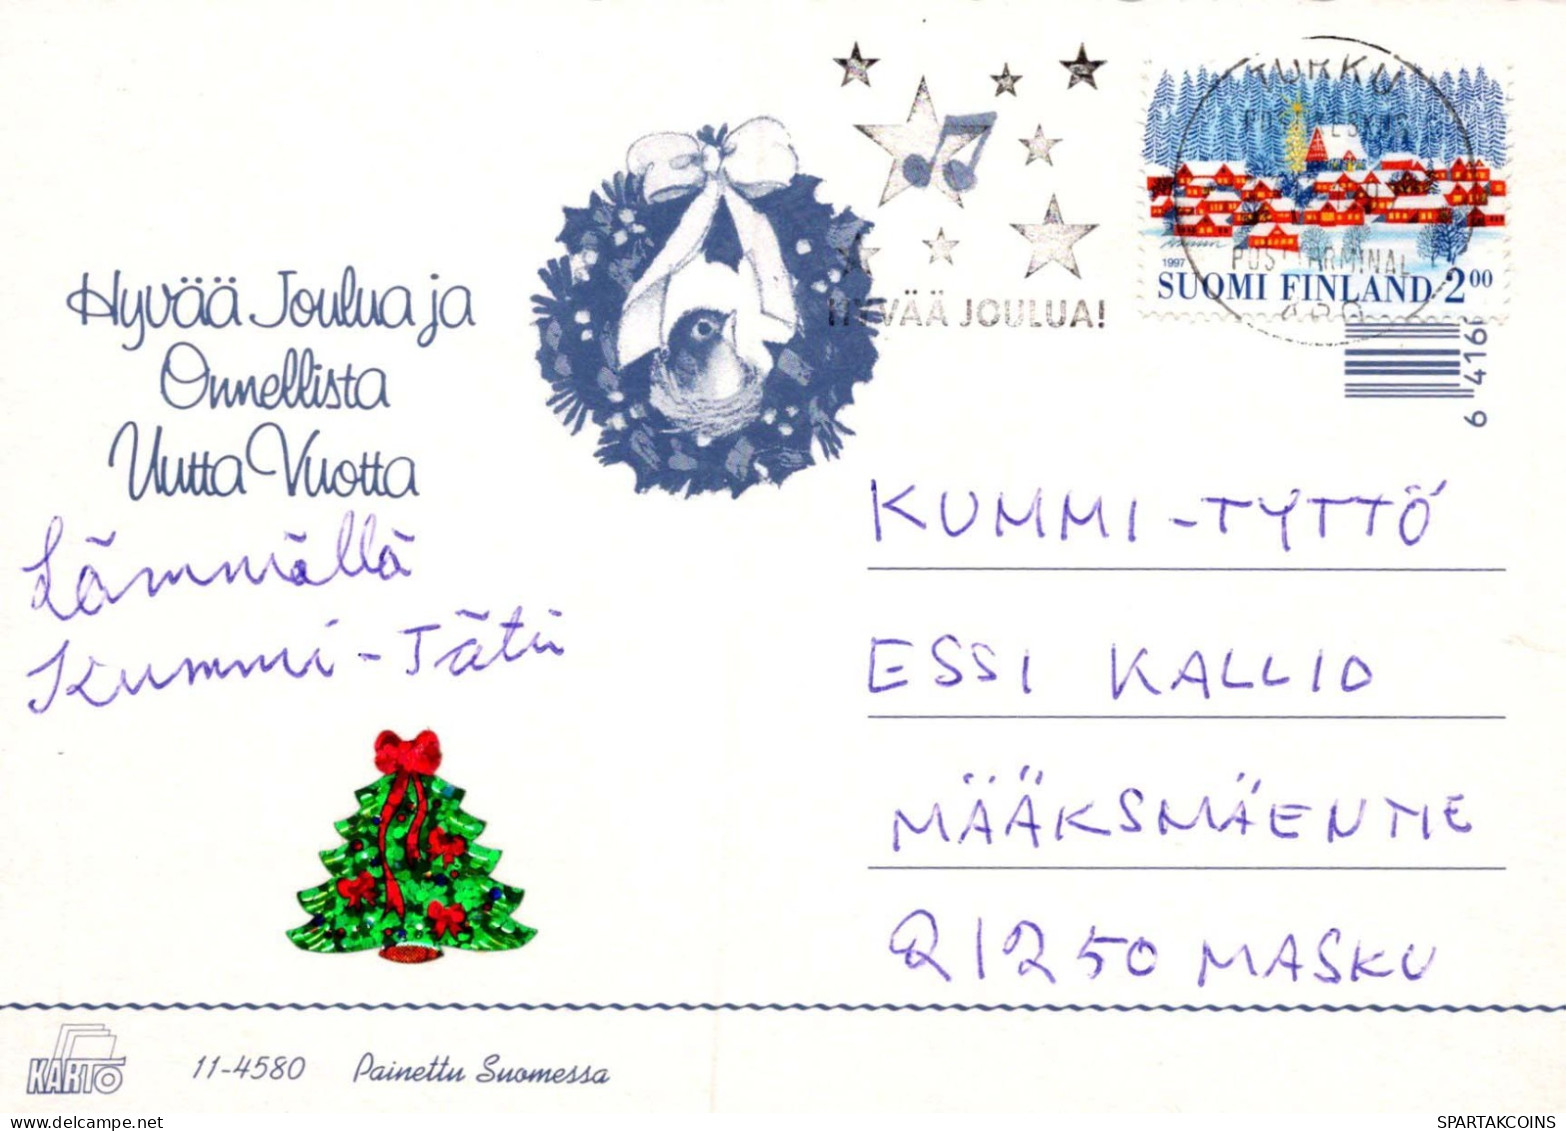 HYVÄÄ JOULUA!
TURKU
POSTTERMINAL
1997
SUOMI FINLAND 2 00
6 416
Hyvää Joulua ja
Onnellista
Uutta Vuotta
Lämmöllä
Kummi-Täti
KUMMI-TYTTÖ
ESSI KALLIO
MÄÄKSMÄENTIE
21250 MASKU
KARTO
11-4580 Painettu Suomessa
SPARTAKCOINS